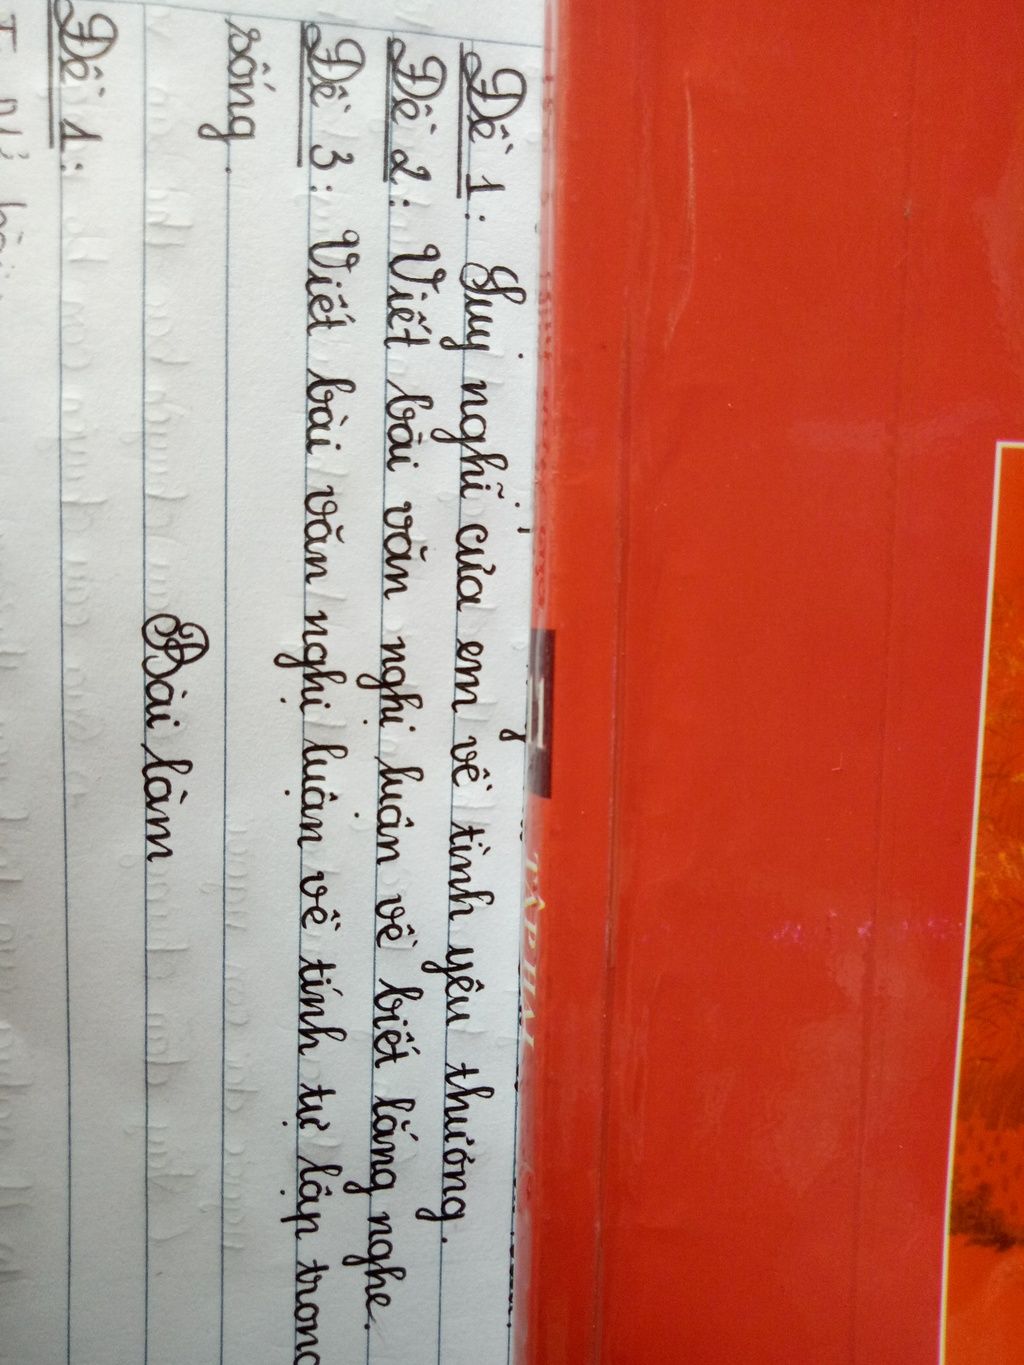 TẬP HAI
Đề 1: Suy nghĩ của em về tình yêu thương.
Đề 2: Viết bài văn nghị luận về biết lắng nghe.
Đề 3: Viết bài văn nghị luận về tính tự lập trong
sống.
Bài làm
Đề 1: